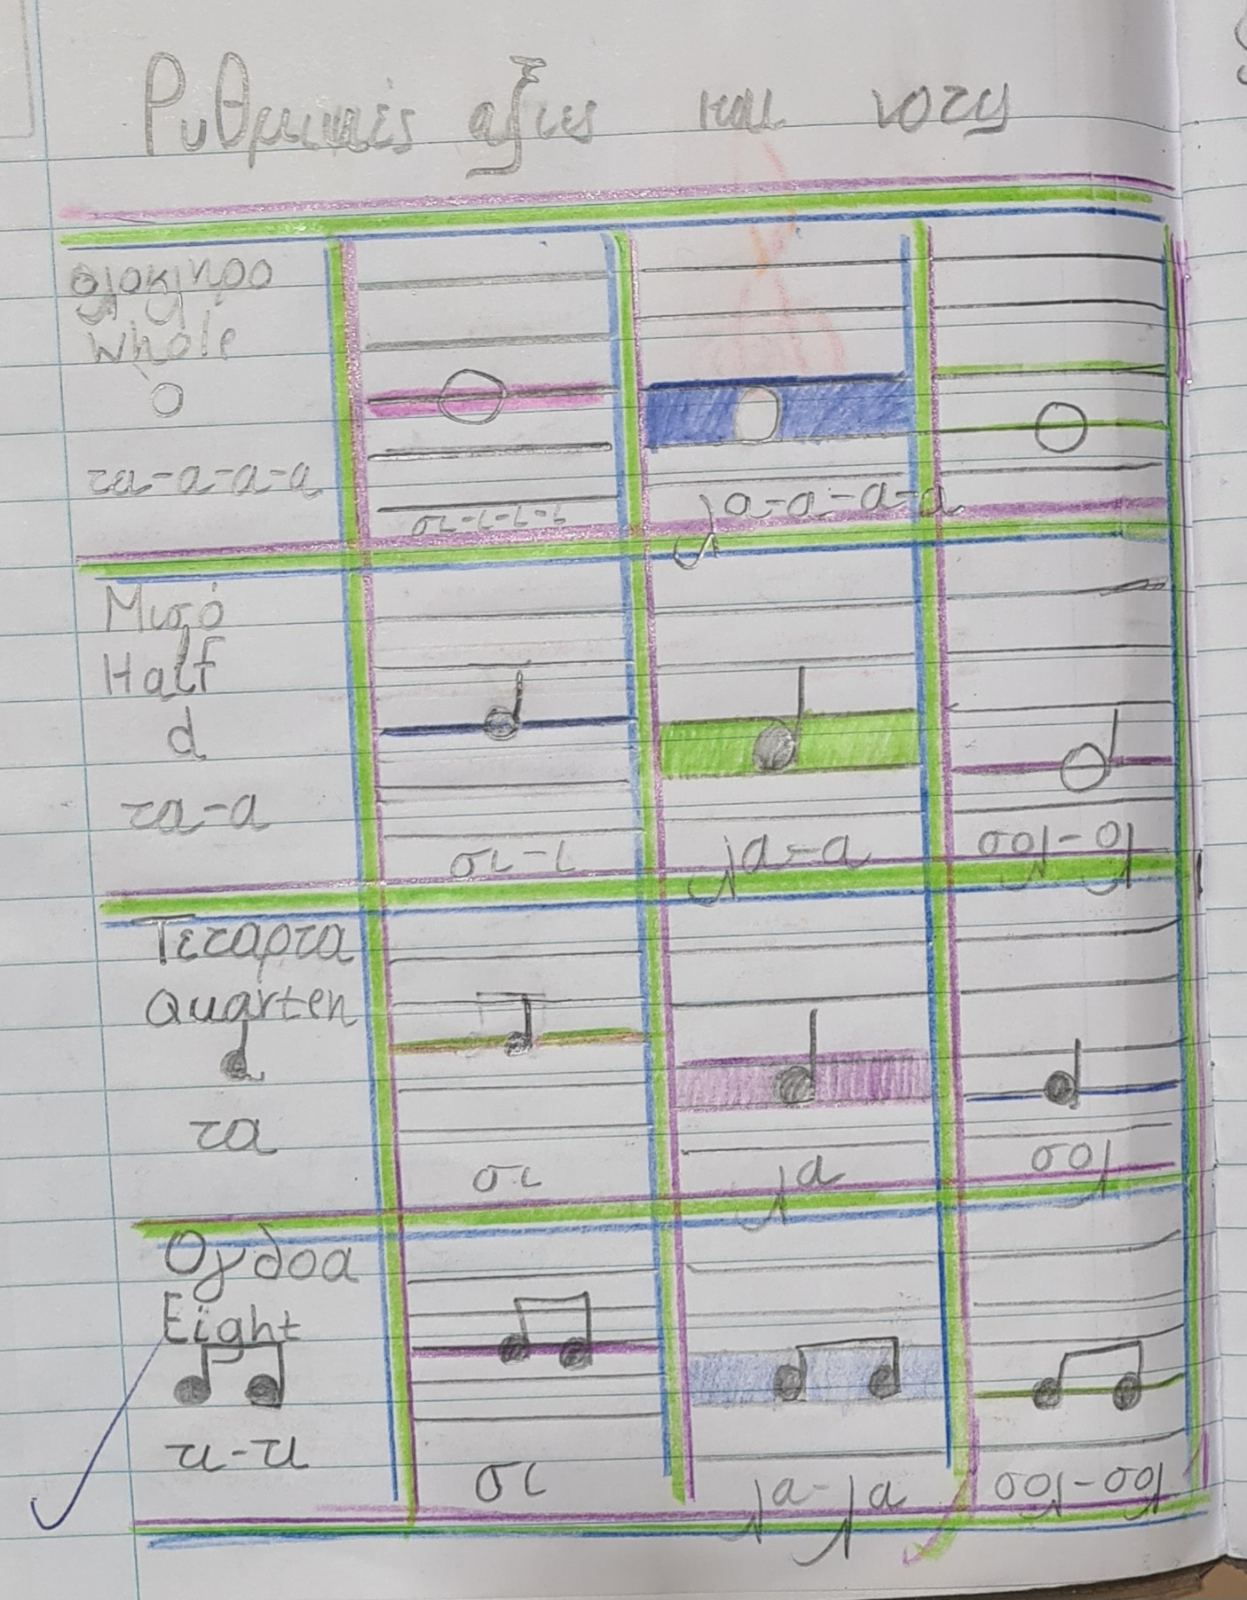 Ρυθμικές αξίες και νοτες
ολοκληρο
Whole
τα-α-α-α
σι-ι-ι-ι
λα-α-α-α
Μισό
Half
τα-α
σι-ι
λα-α
σολ-ολ
Τεταρτα
Quarten
τα
σι
λα
σολ
Ογδοα
Eight
τι-τι
σι
λα-λα
σολ-σολ